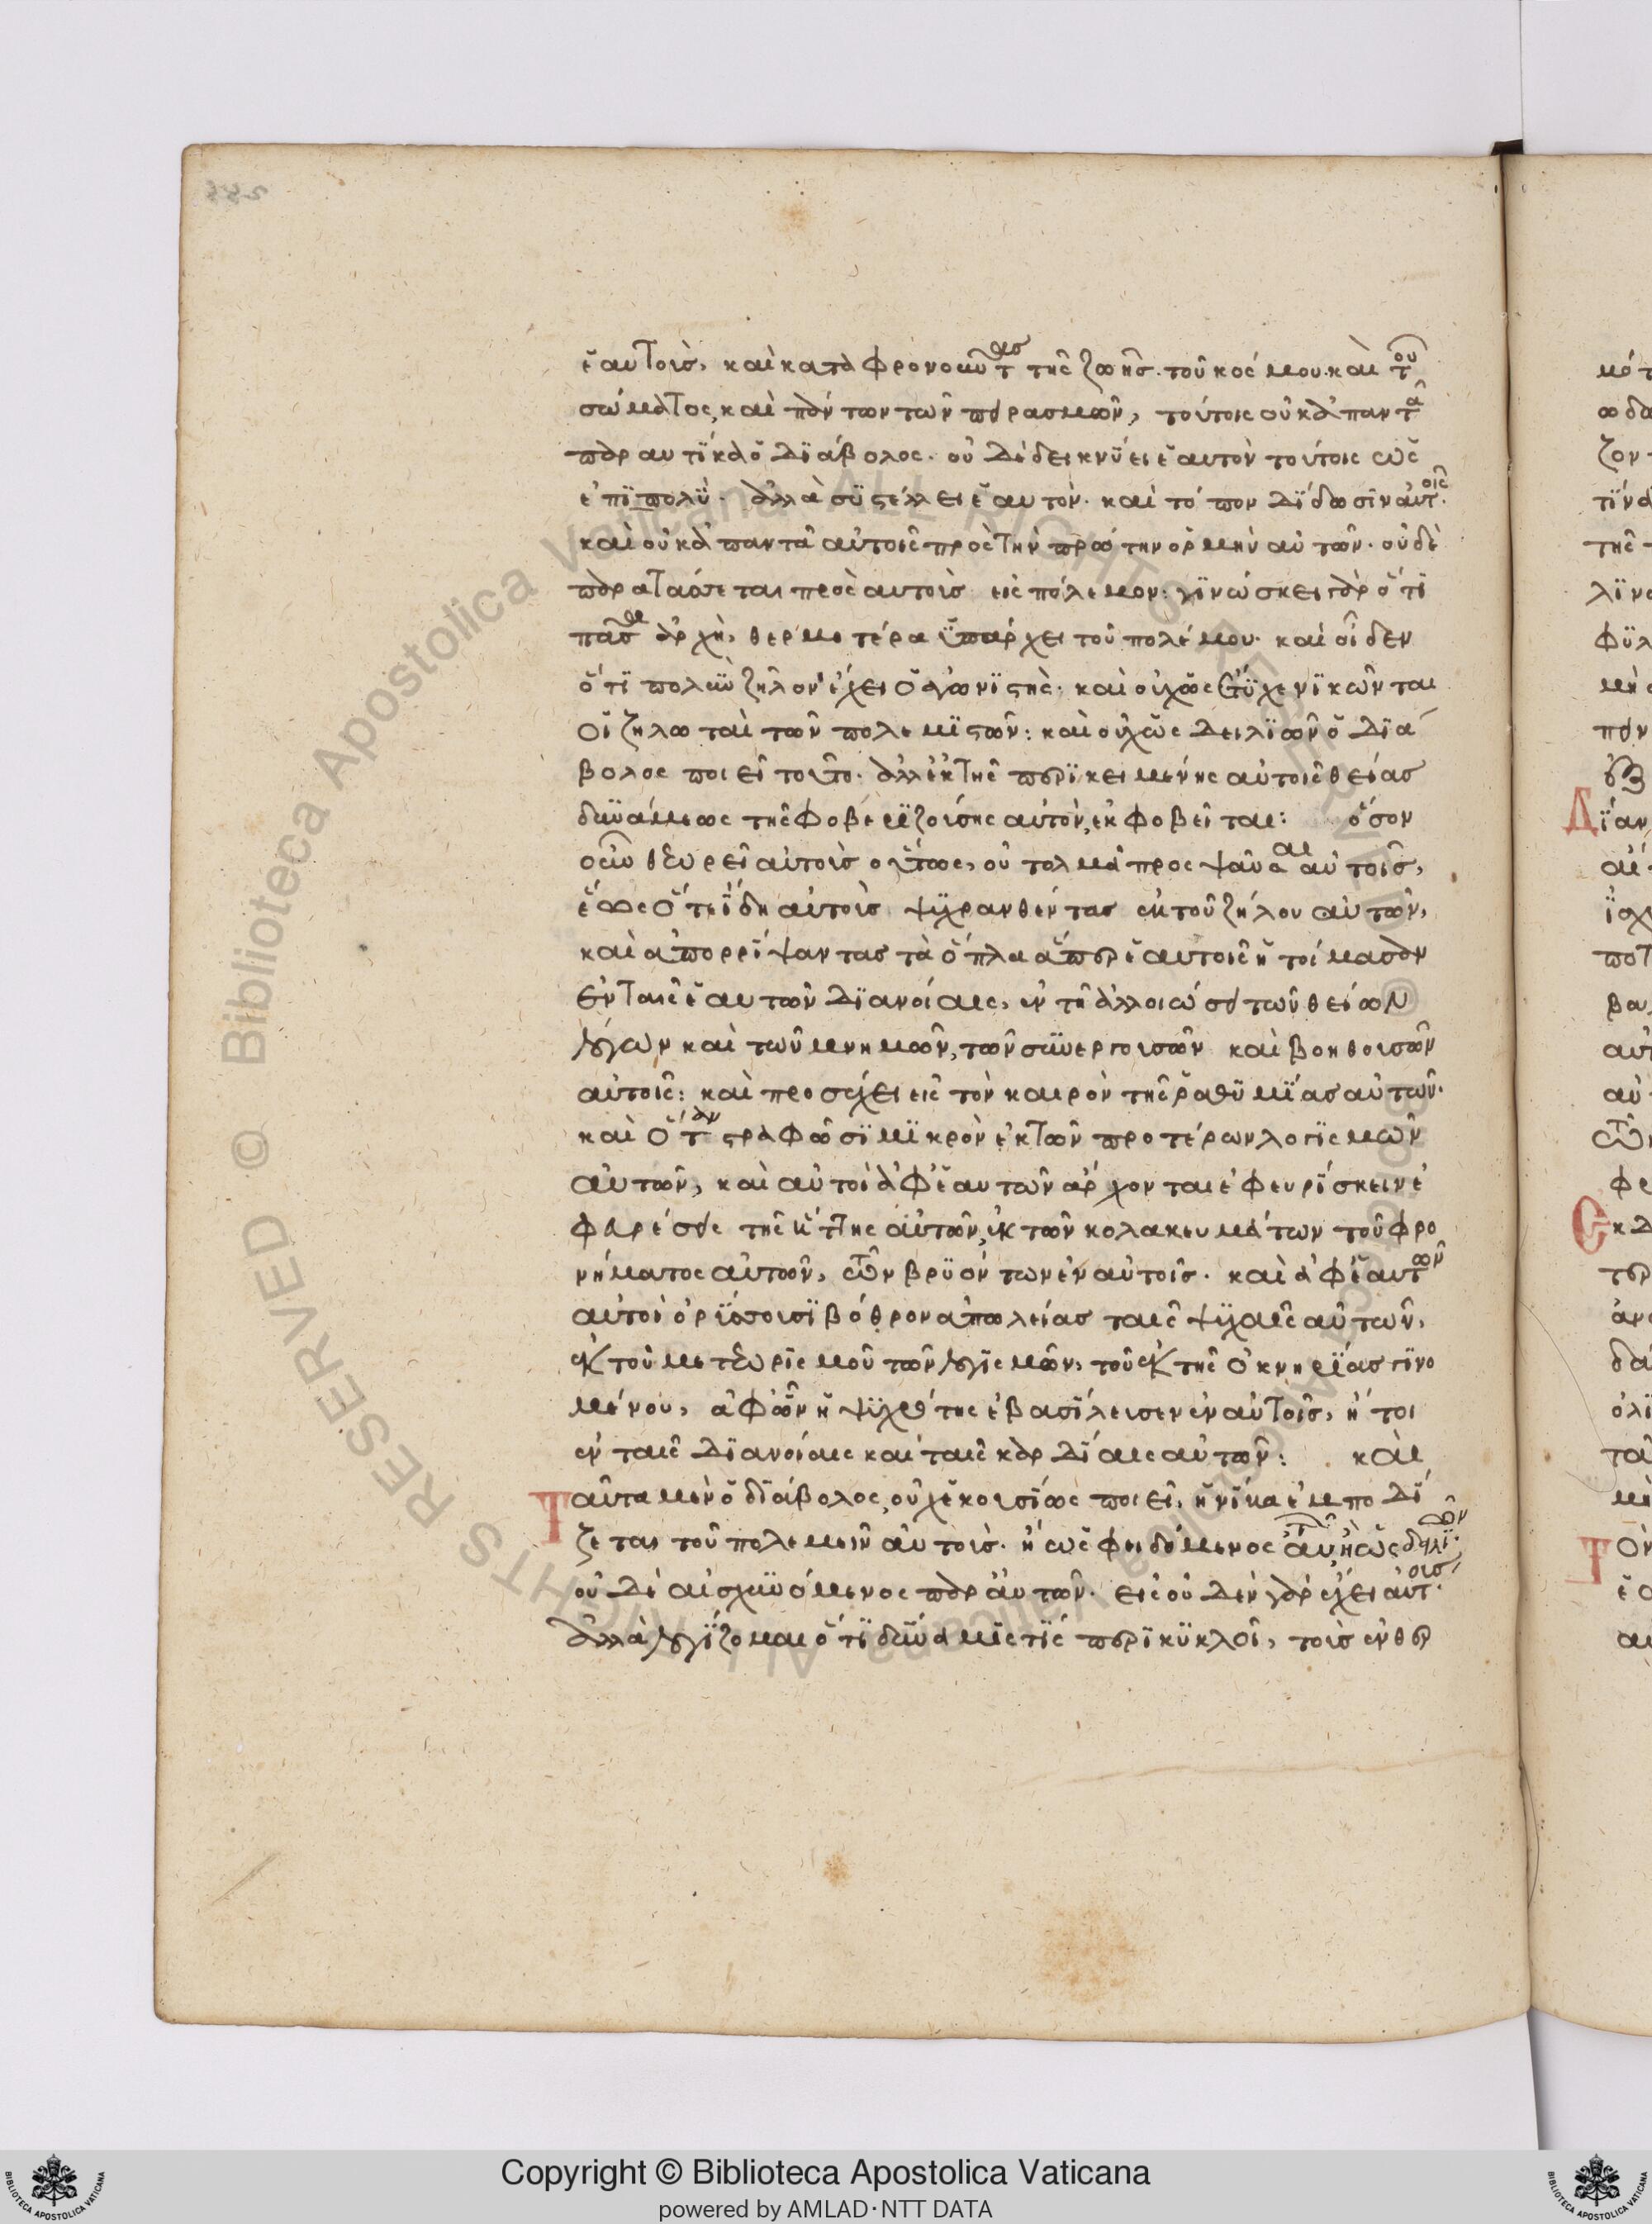 ἑαυτοὺς, καὶ καταφρονοῦντες τῆς ζωῆς τοῦ κόσμου· καὶ τοῦ
σώματος, καὶ πάντων τῶν πειρασμῶν, τούτοις οὐκ ἀπαντᾶ
παραυτίκα ὁ διάβολος· οὐδὲ δεικνύει ἑαυτὸν τούτοις ὡς
ἐπιπολύ· ἀλλὰ συστέλλει ἑαυτὸν· καὶ τόπον δίδωσιν αὐτοῖς·
καὶ οὐκ ἀπαντᾶ αὐτοῖς πρὸς τὴν πρώτην ὁρμὴν αὐτῶν· οὐδὲ
παρατάσσεται πρὸς αὐτοὺς εἰς πόλεμον: γινώσκει γὰρ ὅτι
πᾶσα ἀρχὴ, θερμοτέρα ὑπάρχει τοῦ πολέμου· καὶ οἶδεν
ὅτι πολὺν ζῆλον ἔχει ὁ ἀγωνιστής· καὶ οὐχ ὡς ἔτυχε νικῶνται
οἱ ζηλωταὶ τῶν πολεμιστῶν: καὶ οὐχ ὡς δειλιῶν ὁ διά
βολος ποιεῖ τοῦτο· ἀλλ' ἐκ τῆς περικειμένης αὐτοῖς θείας
δυνάμεως τῆς φοβεριζούσης αὐτὸν, ἐκφοβεῖται: ὅσον
οὖν θεωρεῖ αὐτοὺς οὕτως, οὐ τολμᾶ προσψαῦσαι αὐτοῖς,
ἕως ὅτε ἴδη αὐτοὺς ψυχρανθέντας ἐκ τοῦ ζήλου αὐτῶν,
καὶ ἀπορρίψαντας τὰ ὅπλα ἅπερ ἑαυτοῖς ἡτοίμασαν
ἐν ταῖς ἑαυτῶν διανοίαις, ἐν τῇ ἀλλοιώσει τῶν θείων
λόγων καὶ τῶν μνημῶν, τῶν συνεργουσῶν καὶ βοηθουσῶν
αὐτοῖς: καὶ προσέχει εἰς τὸν καιρὸν τῆς ῥαθυμίας αὐτῶν·
καὶ ὅταν στραφῶσι μικρὸν ἐκ τῶν προτέρων λογισμῶν
αὐτῶν, καὶ αὐτοὶ ἀφ' ἑαυτῶν ἄρχονται ἐφευρίσκειν ἐ
φαρέσεις τῆς ἥττης αὐτῶν, ἐκ τῶν κολακευμάτων τοῦ φρο
νήματος αὐτῶν, τῶν βρυόντων ἐν αὐτοῖς· καὶ ἀφ' ἑαυτῶν
αὐτοὶ ὀρύσσουσι βόθρον ἀπωλείας ταῖς ψυχαῖς αὐτῶν,
ἐκ τοῦ μετεωρισμοῦ τῶν λογισμῶν, τοῦ ἐκ τῆς ὀκνηρίας γινο
μένου, ἀφ' ὧν ἡ ψυχρότης ἐβασίλευσεν ἐν αὐτοῖς, ἤτοι
ἐν ταῖς διανοίαις καὶ ταῖς καρδίαις αὐτῶν: καὶ
Ταῦτα μὲν ὁ διάβολος, οὐχ ἑκουσίως ποιεῖ, ἡνίκα ἐμποδί
ζεται τοῦ πολεμεῖν αὐτοὺς· ἢ ὡς φειδόμενος αὐτῶν, ἢ ὡς δειλιῶν·
οὐδὲ αἰσχυνόμενος παρ' αὐτῶν· εἰς οὐδὲν γὰρ ἔχει αὐτούς·
ἀλλὰ λογίζομαι ὅτι δύναμίς τις περικυκλοῖ, τοὺς ἐν θερ